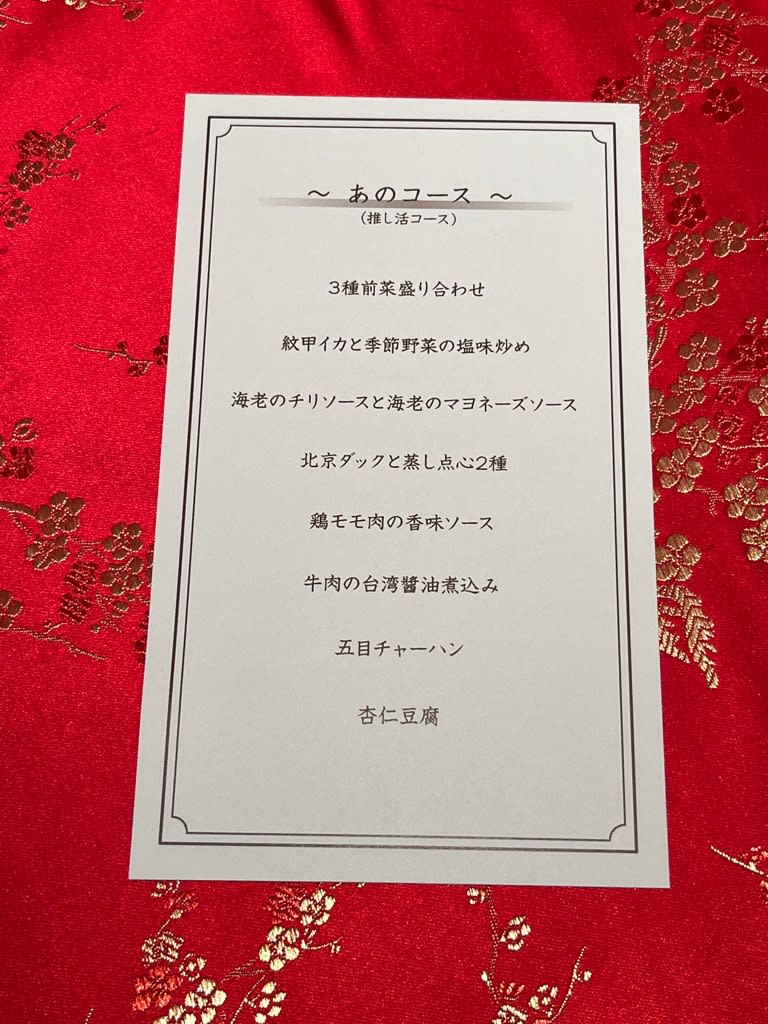 ～ あのコース ～
（推し活コース）
3種前菜盛り合わせ
紋甲イカと季節野菜の塩味炒め
海老のチリソースと海老のマヨネーズソース
北京ダックと蒸し点心2種
鶏モモ肉の香味ソース
牛肉の台湾醬油煮込み
五目チャーハン
杏仁豆腐